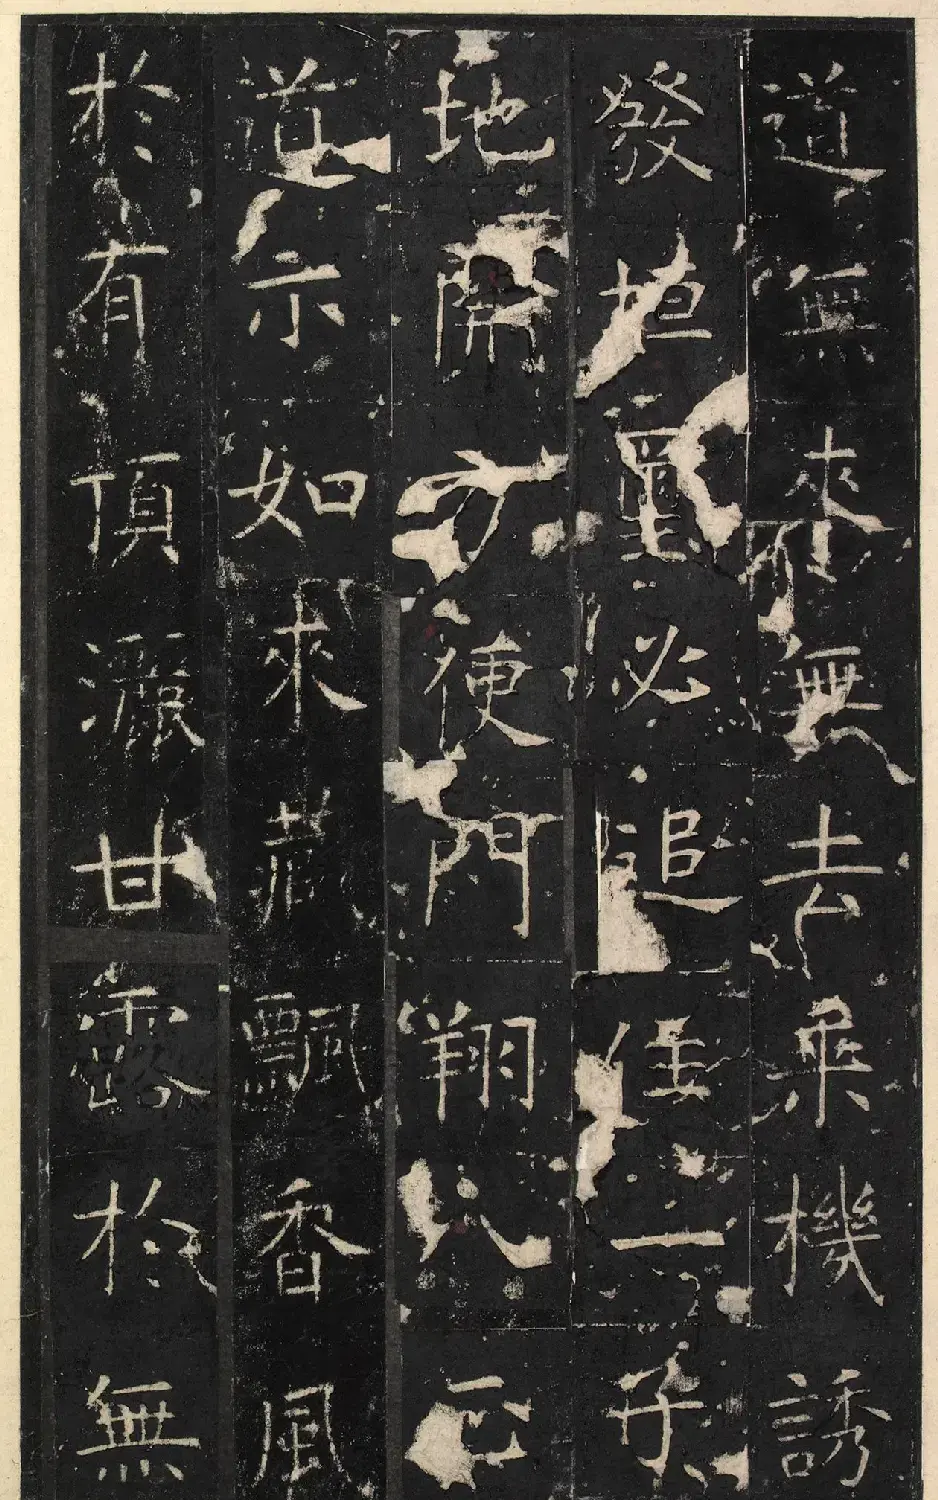 道無來無去乗機誘
發揰壐必追住一子
地開方便門翔八正
道示如來藏飄香風
於有頂灑甘露於無